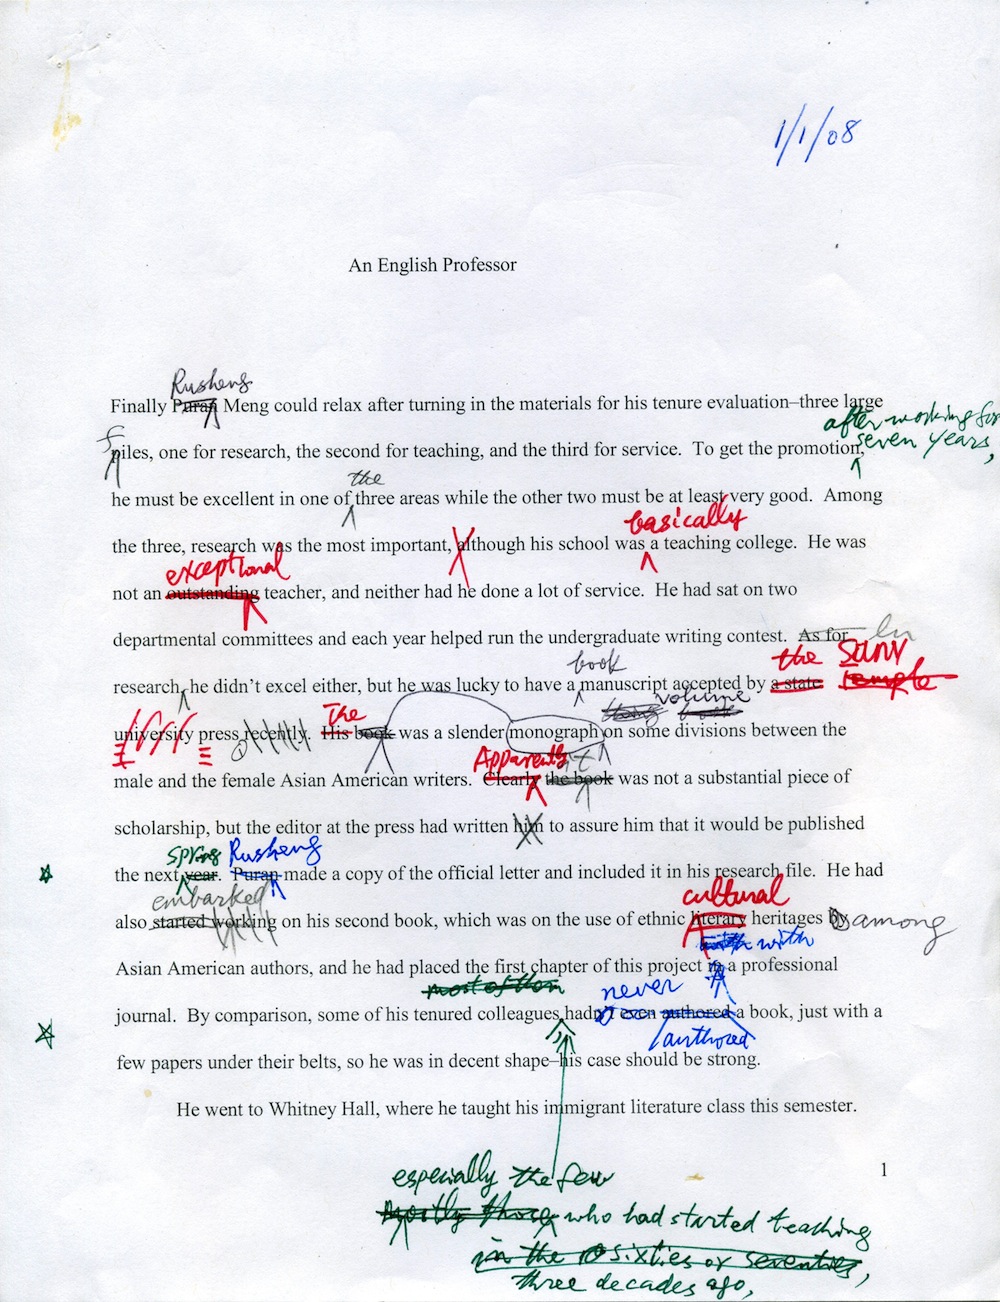 1/1/08
An English Professor
Rusheng
Finally Puran Meng could relax after turning in the materials for his tenure evaluation–three large
after working for
f
seven years,
piles, one for research, the second for teaching, and the third for service. To get the promotion,
the
he must be excellent in one of three areas while the other two must be at least very good. Among
basically
the three, research was the most important, although his school was a teaching college. He was
exceptional
not an outstanding teacher, and neither had he done a lot of service. He had sat on two
departmental committees and each year helped run the undergraduate writing contest. As for In
book
the SUNY
research, he didn't excel either, but he was lucky to have a manuscript accepted by a state temple
volume
The
university press recently. His book was a slender monograph on some divisions between the
Apparently it
male and the female Asian American writers. Clearly the book was not a substantial piece of
scholarship, but the editor at the press had written him to assure him that it would be published
spring Rusheng
the next year. Puran made a copy of the official letter and included it in his research file. He had
embarked
cultural
also started working on his second book, which was on the use of ethnic literary heritages by among
with
Asian American authors, and he had placed the first chapter of this project in a professional
most of them
never
journal. By comparison, some of his tenured colleagues hadn't even authored a book, just with a
authored
few papers under their belts, so he was in decent shape–his case should be strong.
He went to Whitney Hall, where he taught his immigrant literature class this semester.
1
especially the few
mostly those who had started teaching
in the sixties or seventies,
three decades ago,